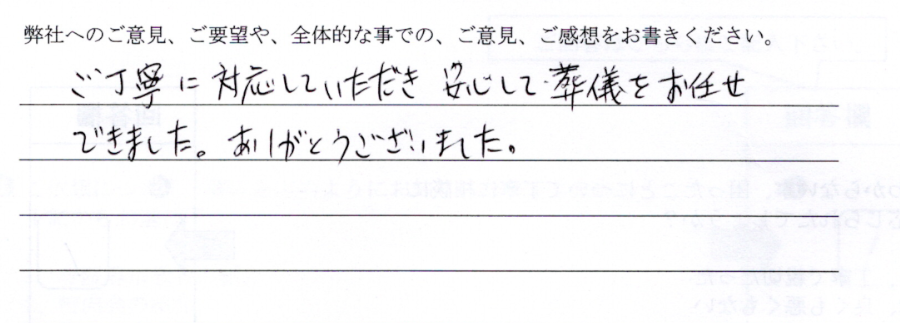 弊社へのご意見、ご要望や、全体的な事での、ご意見、ご感想をお書きください。
ご丁寧に対応していただき 安心して葬儀をお任せ
できました。ありがとうございました。